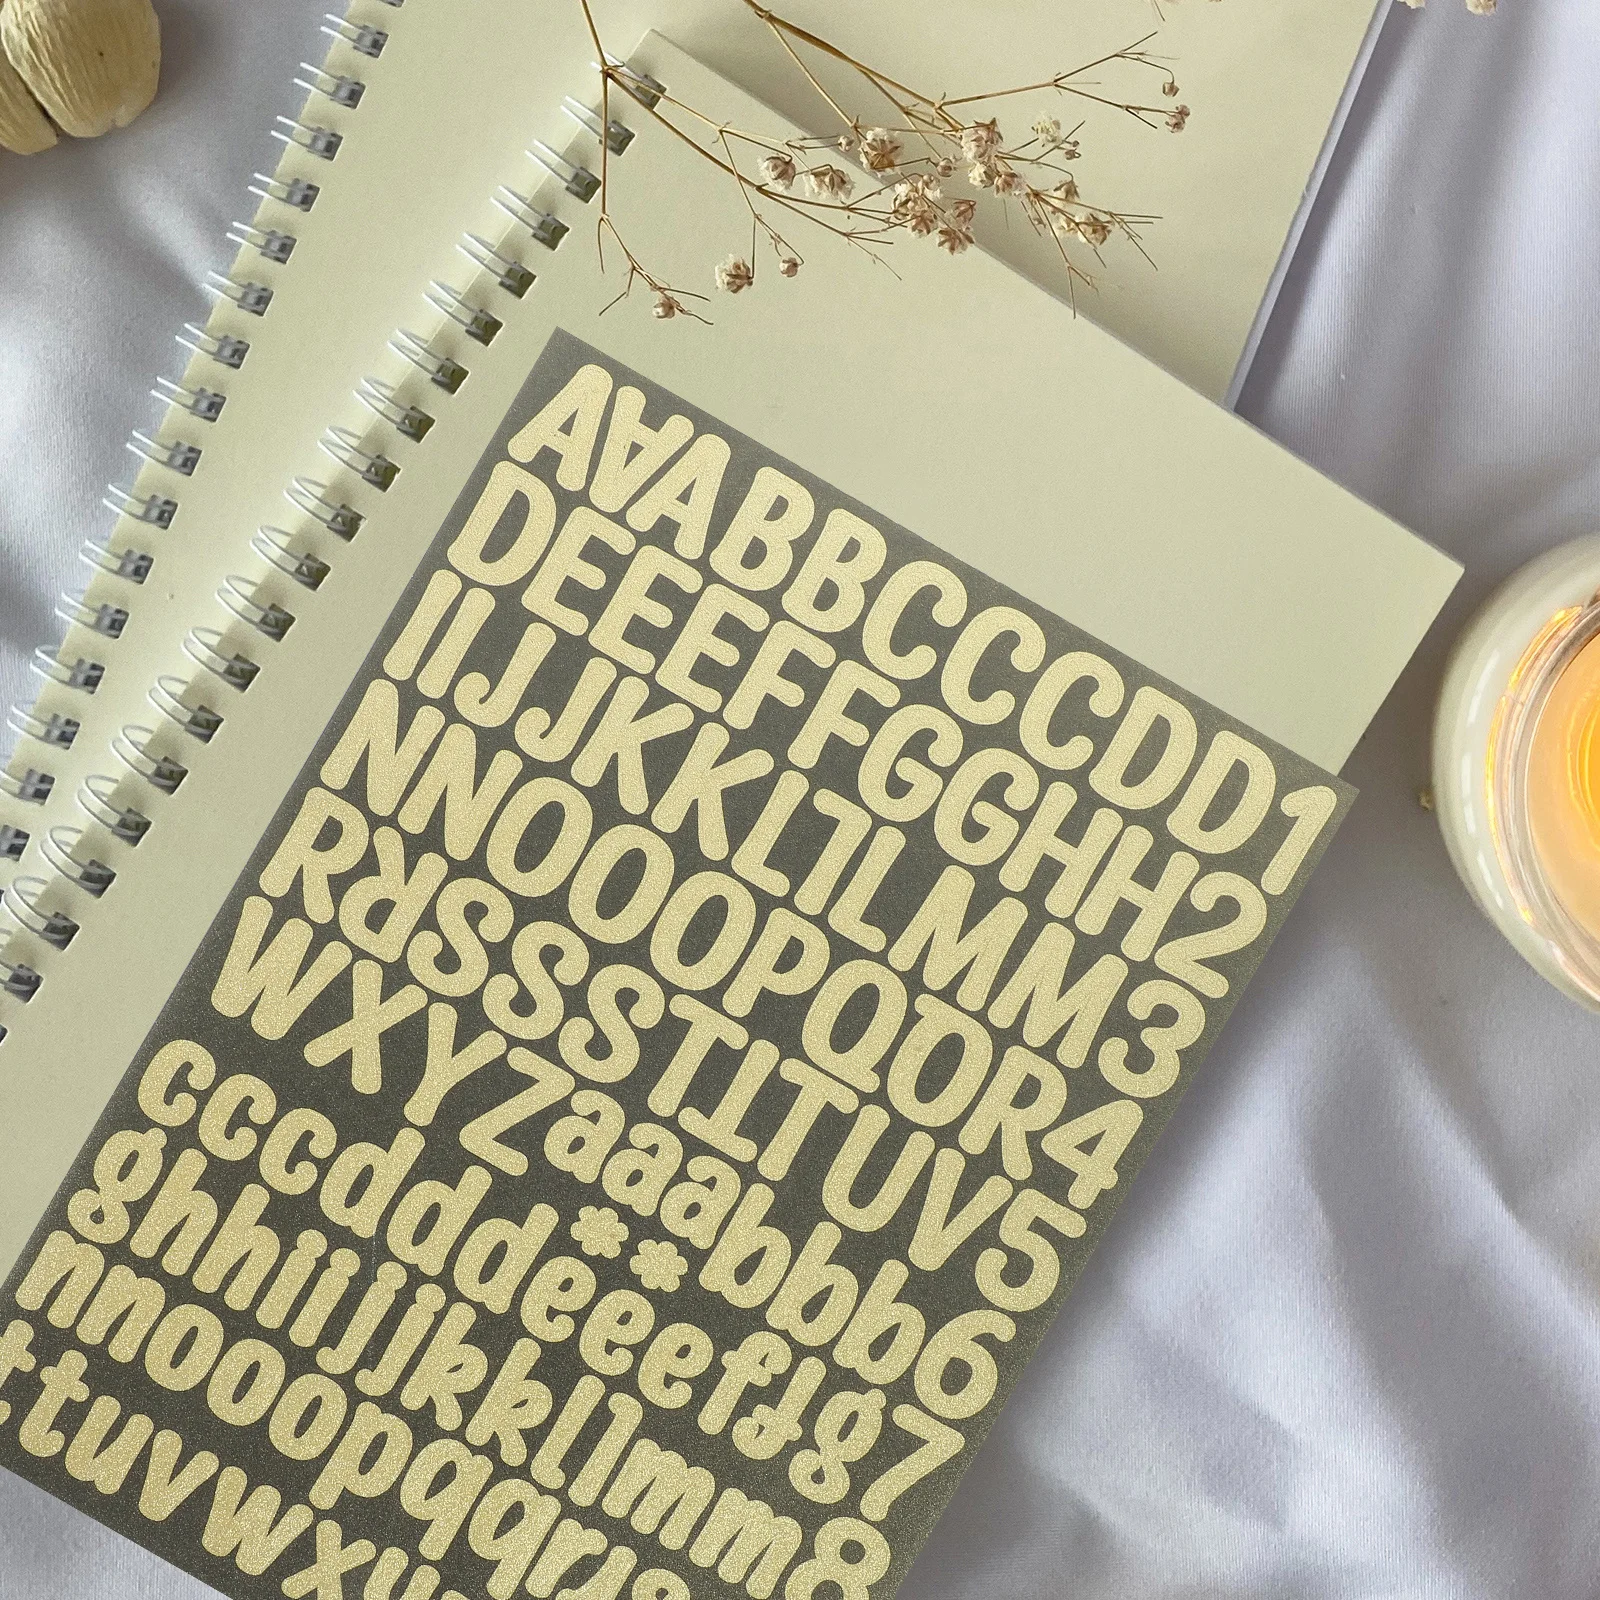 AAABBCCCDD1
DEEEFFGGHH2
IIJJKKLLLMM3
NNOOOPQQR4
RRSSSTTTUV5
WXYZaaabbb6
cccddd**eeeffg7
ghhiijjkkllmmm8
nnooopqqrs
ttuvwxy